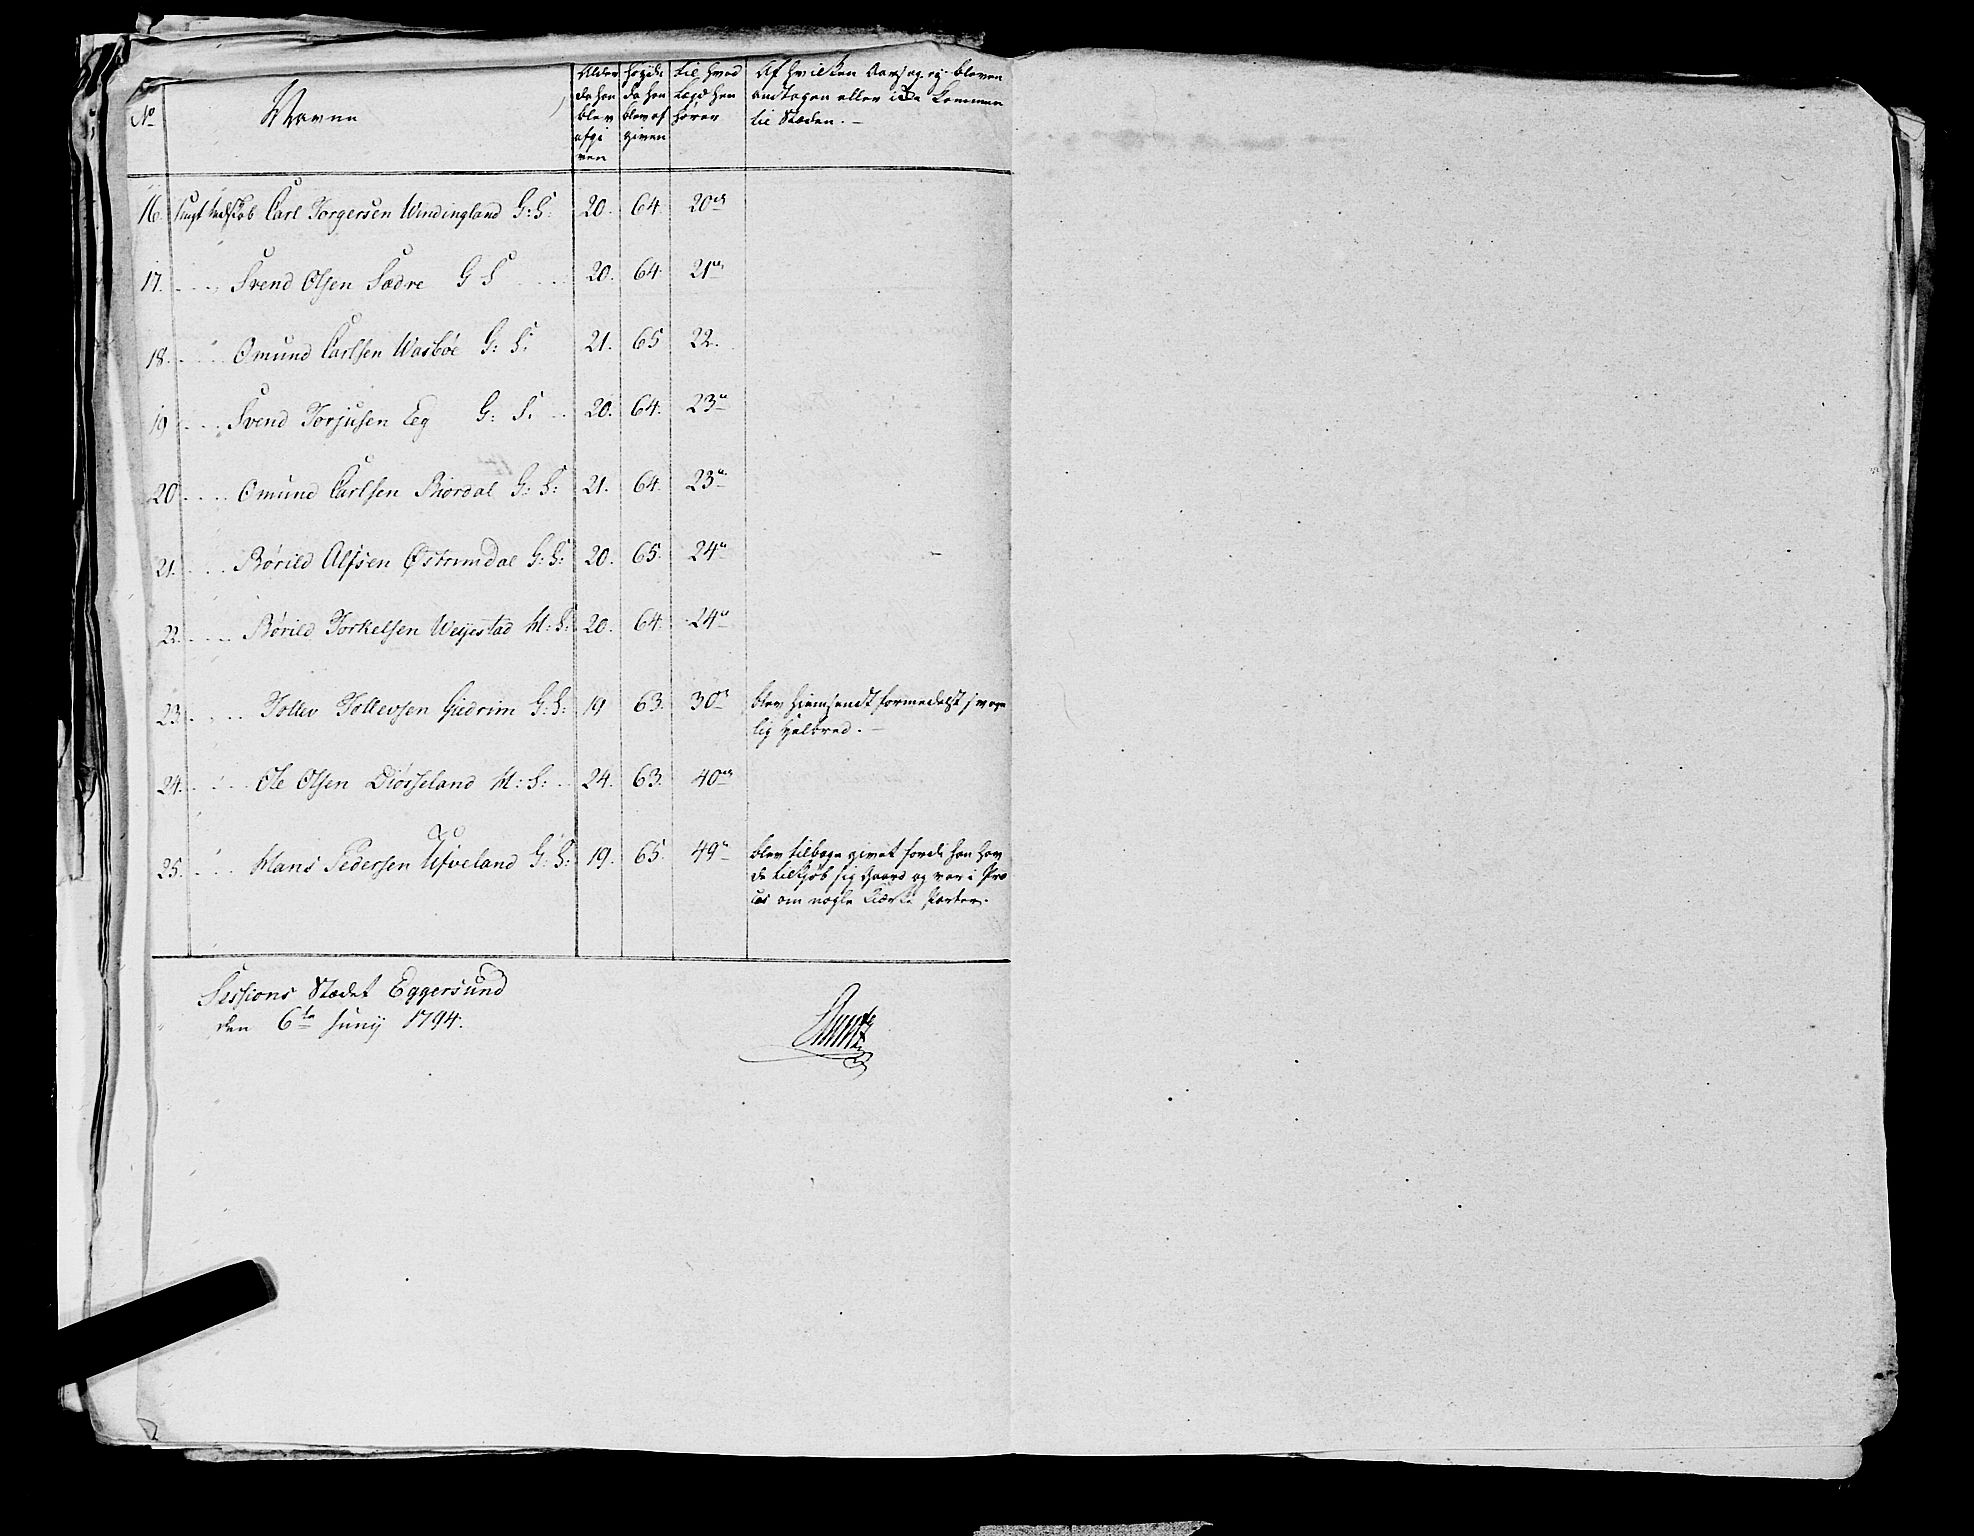 No
Navne
Alder
da han
blev
afgi
ven
Høyde
da han
blev af
given
til hvad
Lægd han
hører
Af hvilken Aarsag ey bleven
andtagen eller icke kommen
til Stæden. -
16. Carl Torgersen Windingland G: S: 20. 64. 20de
17. Svend Olsen Sædre G S 20. 64. 21de
18. Omund Carlsen Wasbøe G: S: 21. 65 22.
19 Svend Torjusen Eeg G: S. 20. 64. 23de
20 Omund Carlsen Biordal G: S: 21. 64. 23de
21. Børild Alfsen Østrumdal G: S: 20. 65. 24de
22. Børild Torkelsen Weyestad H: S: 20. 64. 24de
23. Tollev Tollevsen Giedrim G: S: 19 63. 30de blev hiemsendt formedelst svage
lig Helbred. -
24. Ole Olsen Diøsseland H: S: 24. 63. 40de
25. Hans Pedersen Ufveland G: S: 19. 65. 49de blev tilbage givet fordi han hav
de tilkjøb sig Gaard og var i Pro
ces om nogle Parter.
Sessions Stædet Eggersund
den 6te Junij 1794.